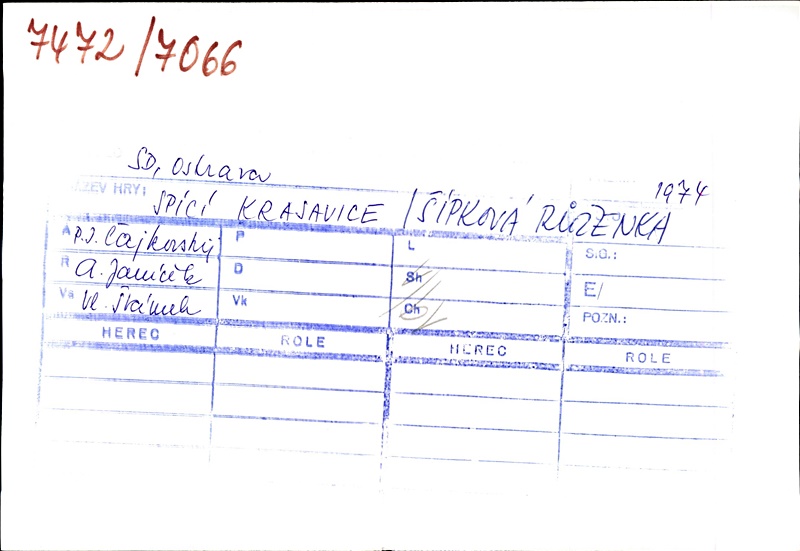 7472/7066
SD, Ostrava
NÁZEV HRY: 1974
SPÍCÍ KRASAVICE / ŠÍPKOVÁ RŮŽENKA
A P.I. Čajkovskij P L S.O.:
R A. Janíček D Sh E/
Va Vl. Šrámek Vk Ch POZN.:
HEREC ROLE HEREC ROLE